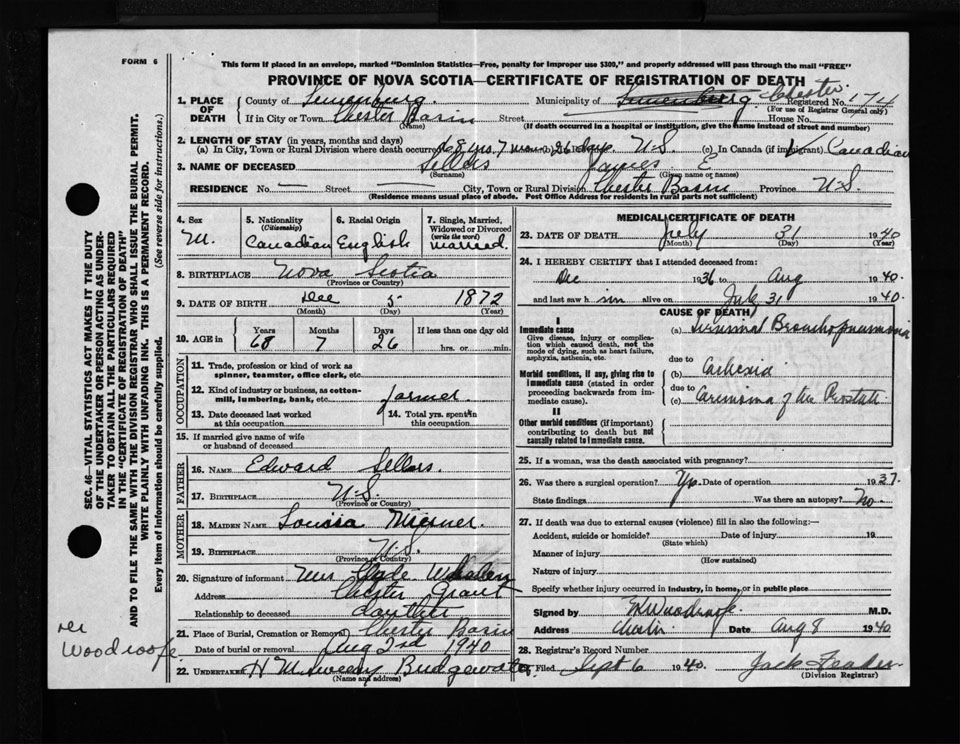 FORM 6
This form if placed in an envelope, marked "Dominion Statistics—Free, penalty for improper use $300," and properly addressed will pass through the mail "FREE"
PROVINCE OF NOVA SCOTIA—CERTIFICATE OF REGISTRATION OF DEATH
1. PLACE OF DEATH
County of Lunenburg. Municipality of Lunenburg. Chester. Registered No. 174
(For use of Registrar General only)
If in City or Town Chester Basin Street House No.
(Name) (If death occurred in a hospital or institution, give the name instead of street and number)
2. LENGTH OF STAY (in years, months and days)
(a) In City, Town or Rural Division where death occurred 68 yrs. 7 mon. 26 days N.S. (c) In Canada (if immigrant) Canadian
3. NAME OF DECEASED Sellers James E
(Surname) (Given name or names)
RESIDENCE No. — Street — City, Town or Rural Division Chester Basin Province N.S.
(Residence means usual place of abode. Post Office Address for residents in rural parts not sufficient)
4. Sex M.
5. Nationality (Citizenship) Canadian
6. Racial Origin English
7. Single, Married, Widowed or Divorced (write the word) married.
8. BIRTHPLACE Nova Scotia
(Province or Country)
9. DATE OF BIRTH Dec 5 1872
(Month) (Day) (Year)
10. AGE in Years 68 Months 7 Days 26 If less than one day old hrs. or min.
OCCUPATION
11. Trade, profession or kind of work as spinner, teamster, office clerk, etc.
12. Kind of industry or business, as cotton-mill, lumbering, bank, etc. farmer
13. Date deceased last worked at this occupation
14. Total yrs. spent in this occupation
15. If married give name of wife or husband of deceased
FATHER
16. NAME Edward Sellars.
17. BIRTHPLACE N.S.
(Province or Country)
MOTHER
18. MAIDEN NAME Louisa
19. BIRTHPLACE N.S.
(Province or Country)
20. Signature of informant Mrs Clyde
Address Chester Grant
Relationship to deceased
21. Place of Burial, Cremation or Removal Chester Basin
Date of burial or removal Aug 2nd 1940
22. UNDERTAKER Bridgewater
(Name and address)
MEDICAL CERTIFICATE OF DEATH
23. DATE OF DEATH July 31 1940
(Month) (Day) (Year)
24. I HEREBY CERTIFY that I attended deceased from:
Dec 1936 to Aug 1940.
and last saw him alive on July 31 1940.
CAUSE OF DEATH
I
Immediate cause
Give disease, injury or complication which caused death, not the mode of dying, such as heart failure, asphyxia, asthenia, etc.
(a) Terminal Bronchopneumonia
due to
Morbid conditions, if any, giving rise to immediate cause (stated in order proceeding backwards from immediate cause).
(b) Cachexia
due to
(c) Carcinoma of the Prostate
II
Other morbid conditions (if important) contributing to death but not causally related to immediate cause.
25. If a woman, was the death associated with pregnancy?
26. Was there a surgical operation? Yes Date of operation 1937.
State findings Was there an autopsy? No
27. If death was due to external causes (violence) fill in also the following:—
Accident, suicide or homicide? Date of injury 19
(State which)
Manner of injury
(How sustained)
Nature of injury
Specify whether injury occurred in industry, in home, or in public place
Signed by Woodroofe M.D.
Address Chester Date Aug 8 1940
28. Registrar's Record Number
Filed Sept 6 1940. Jack
(Division Registrar)
SEC. 46—VITAL STATISTICS ACT MAKES IT THE DUTY
OF THE UNDERTAKER OR PERSON ACTING AS UNDER-
TAKER TO OBTAIN ALL THE PARTICULARS REQUIRED
IN THE "CERTIFICATE OF REGISTRATION OF DEATH"
AND TO FILE THE SAME WITH THE DIVISION REGISTRAR WHO SHALL ISSUE THE BURIAL PERMIT.
WRITE PLAINLY WITH UNFADING INK. THIS IS A PERMANENT RECORD.
Every item of information should be carefully supplied. (See reverse side for instructions.)
Woodroofe